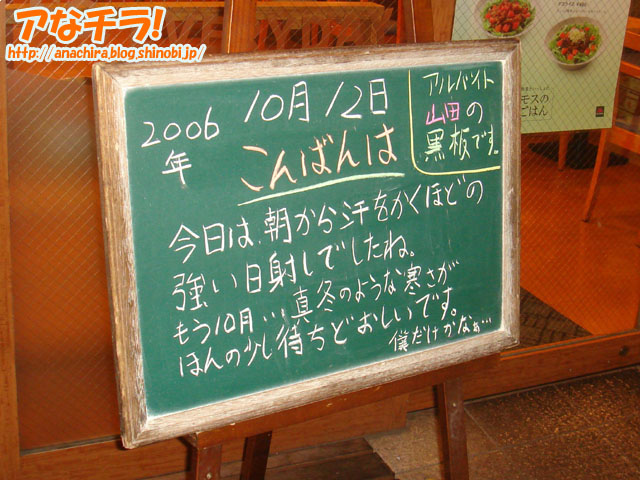 アなチラ!
http://anachira.blog.shinobi.jp/
2006年
10月12日
アルバイト
山田の
黒板です。
こんばんは
今日は、朝から汗をかくほどの
強い日射しでしたね。
もう10月…真冬のような寒さが
ほんの少し待ちどおしいです。
僕だけかなぁ…
モスの
ごはん